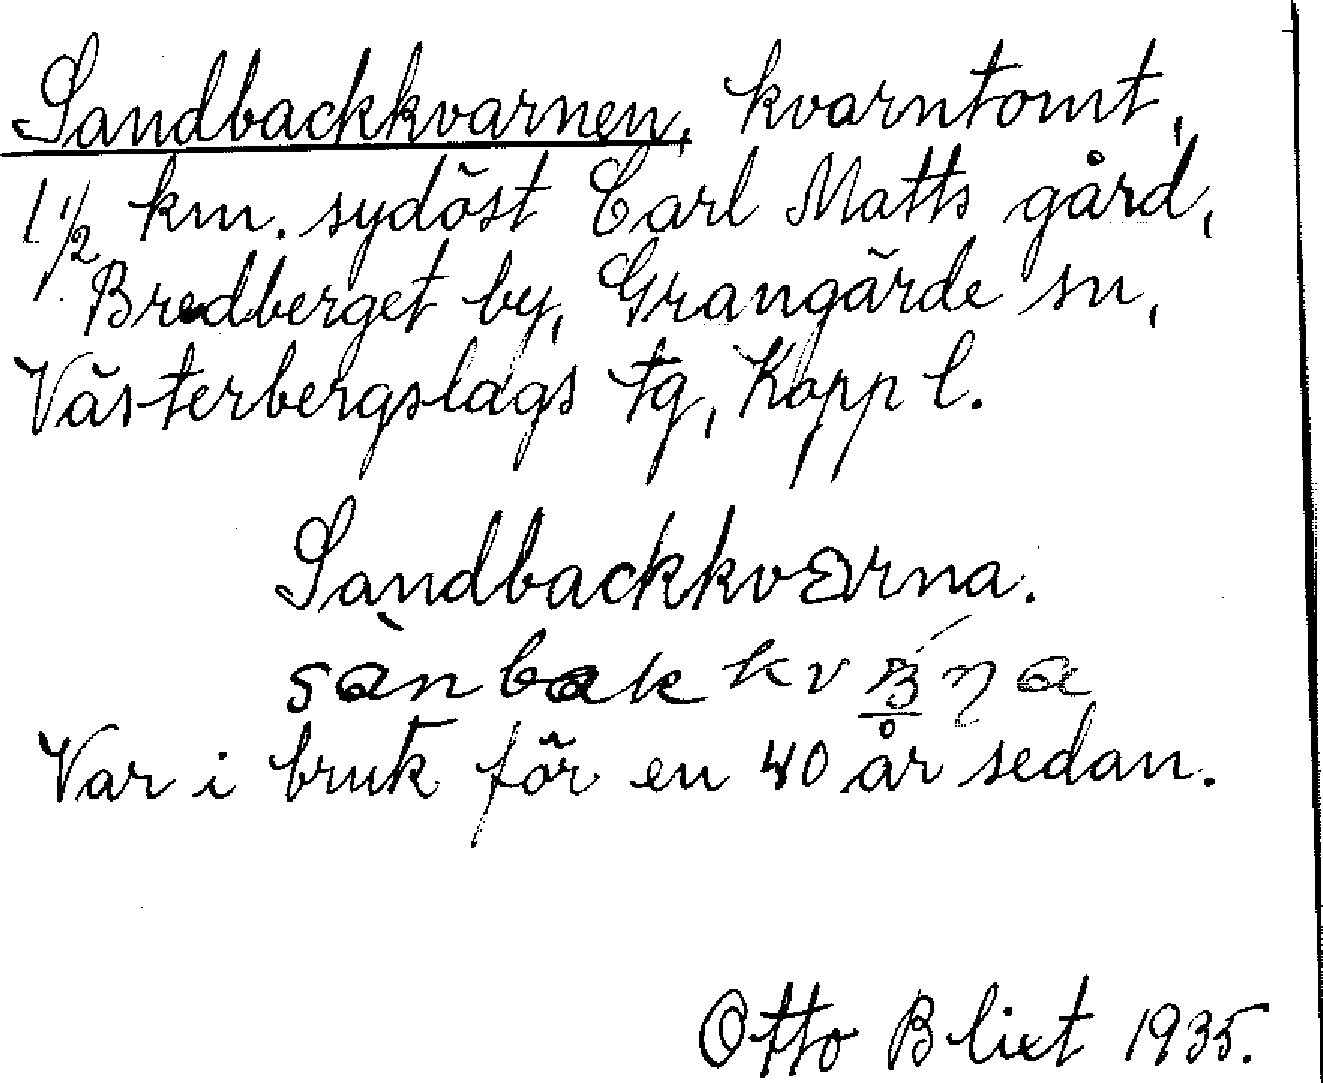 Sandbackkvarnen, kvarntomt,
1 1/2 km. sydöst Carl Matts gård,
Bredberget by, Grangärde sn,
Västerbergslags tg, Kopp l.
Sandbackkvərna.
Var i bruk för en 40 år sedan.
Otto Blixt 1935.